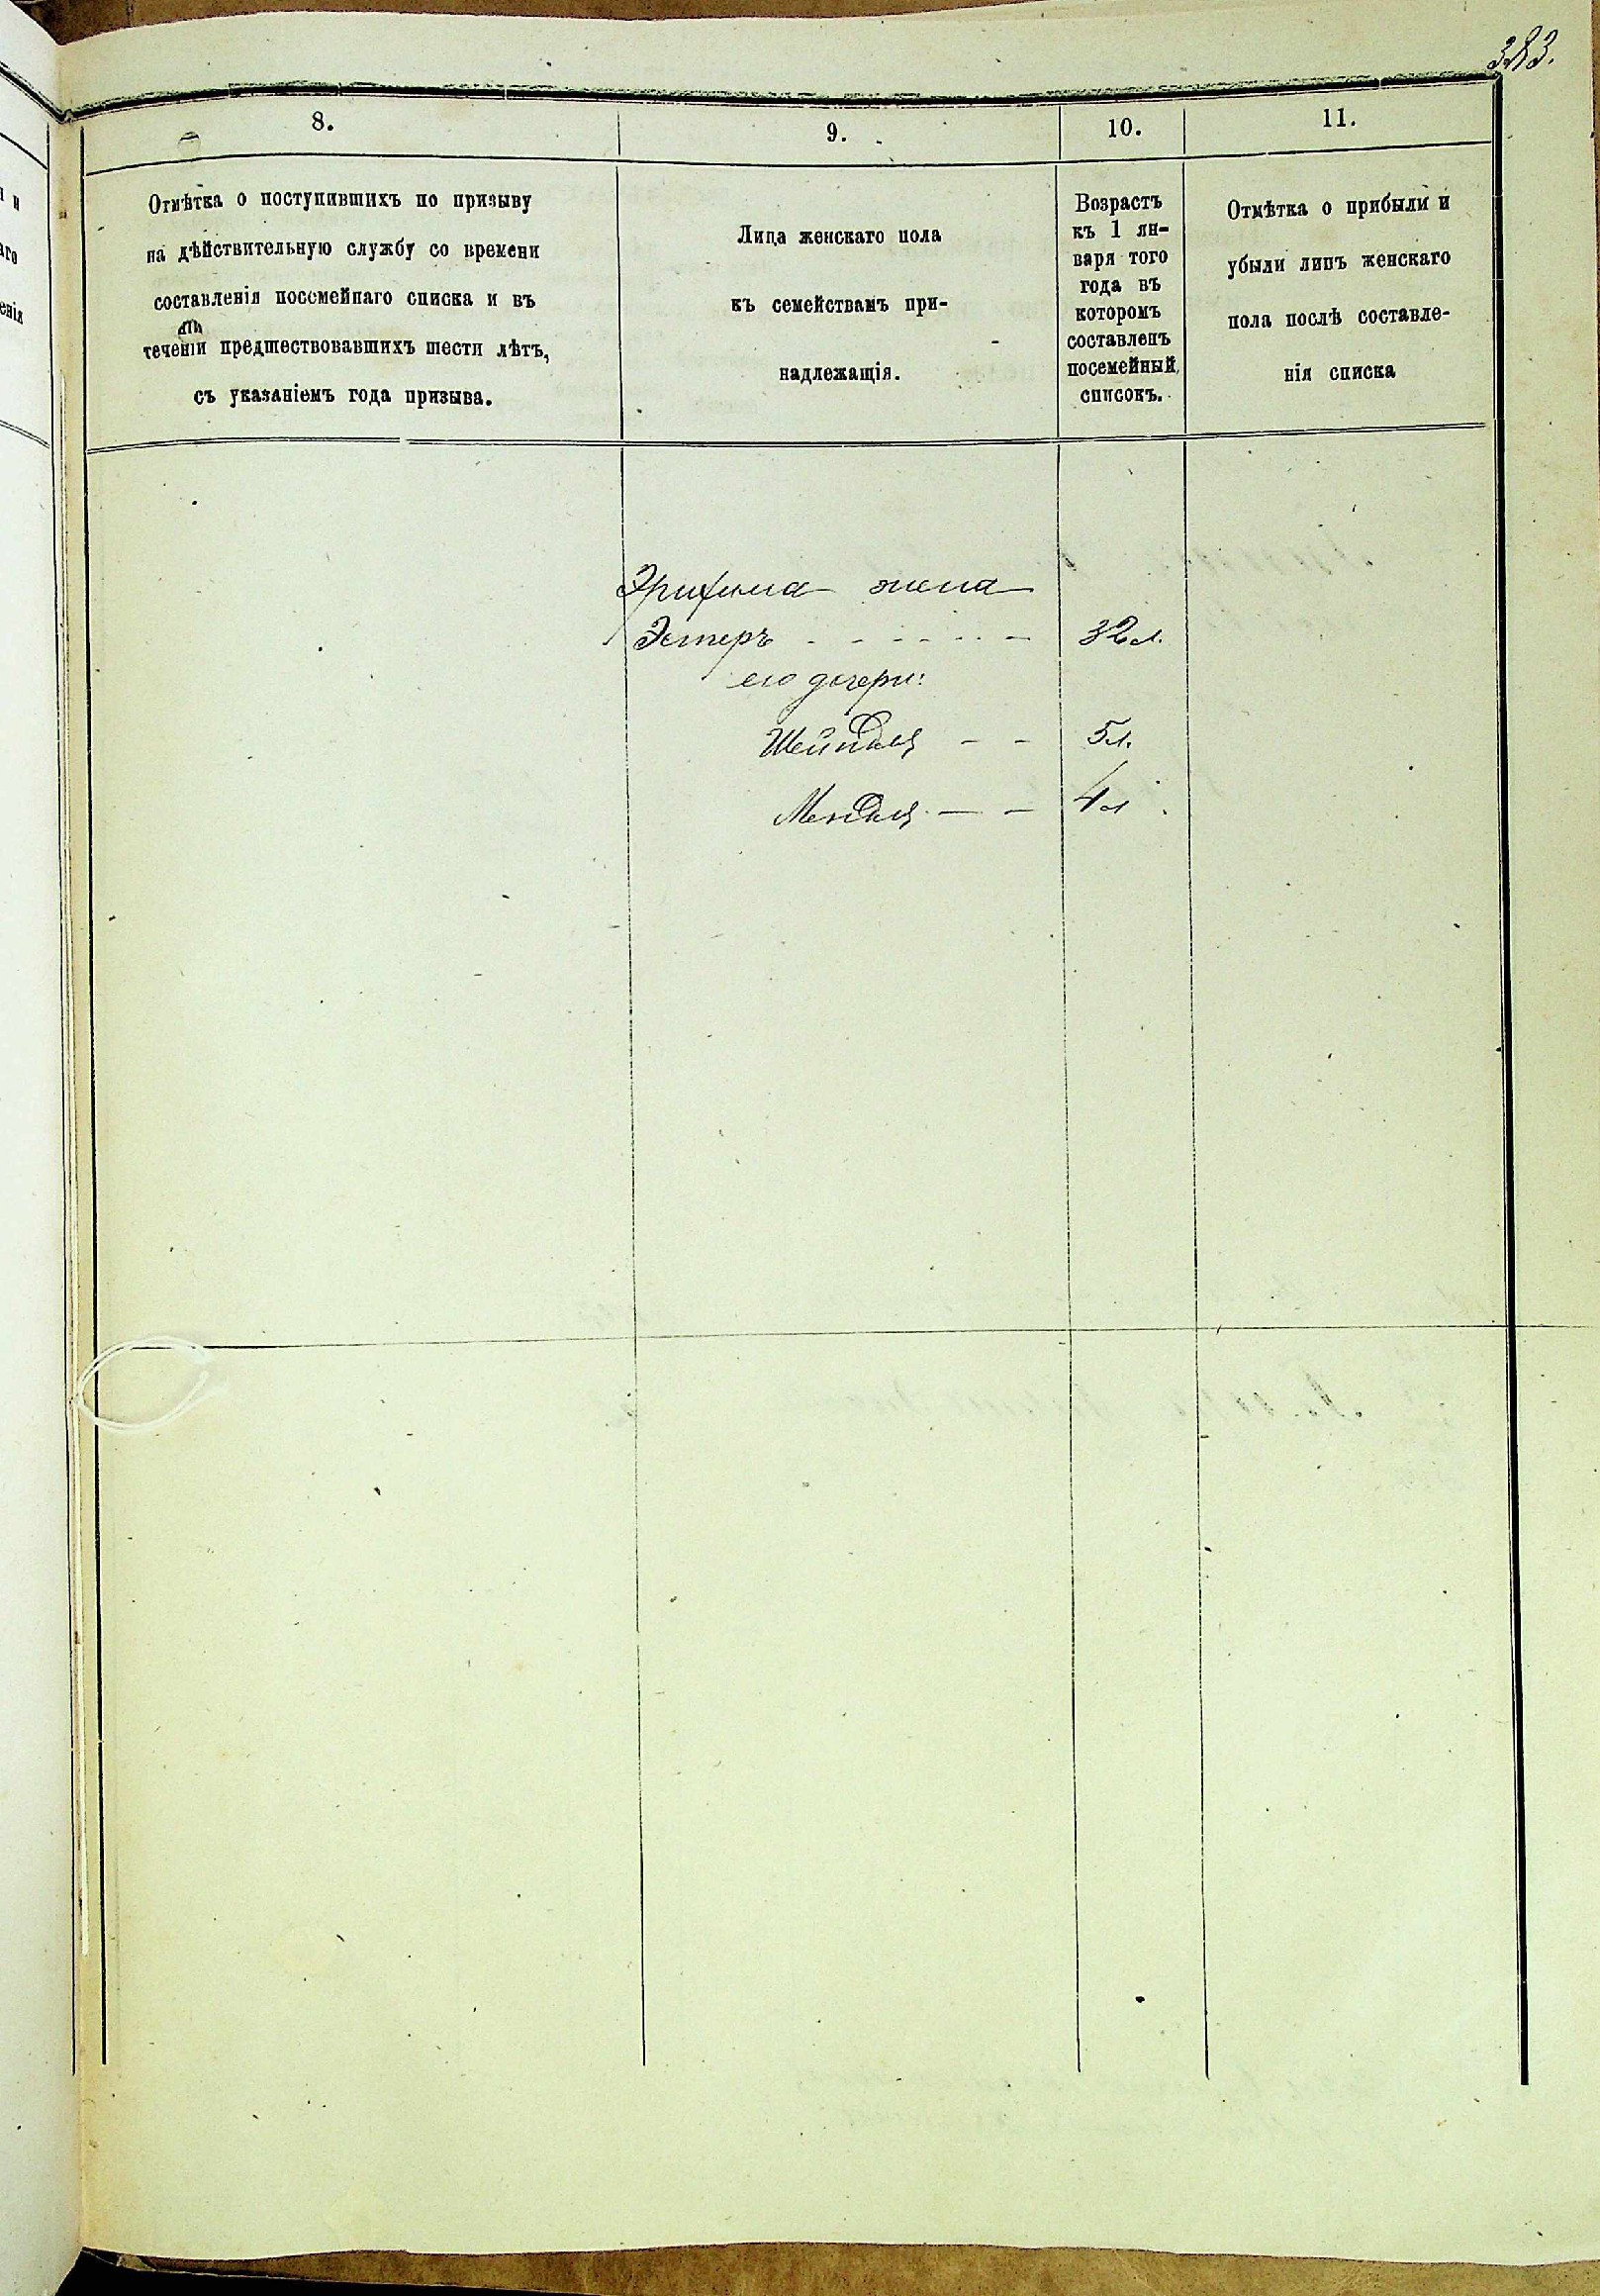 383.
8.
9.
10.
11.
Отмѣтка о поступившихъ по призыву
на дѣйствительную службу со времени
составленія посемейнаго списка и въ
теченіи предшествовавшихъ шести лѣтъ,
съ указаніемъ года призыва.
Лица женскаго пола
къ семействамъ при-
надлежащія.
Возрастъ
къ 1 ян-
варя того
года въ
которомъ
составленъ
посемейный
списокъ.
Отмѣтка о прибыли и
убыли лицъ женскаго
пола послѣ составле-
нія списка
жена
Эстеръ - - - - - - 32 л.
его дочери:
Шейндля - - 5 л.
Мендля - - 4 л